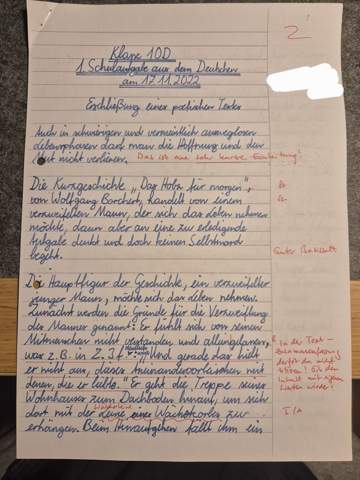 2
Klasse 10D
1. Schulaufgabe aus dem Deutschen
am 17.11.2022
Erschließung eines poetischen Textes
Auch in schwierigen und vermeintlich ausweglosen
Lebensphasen darf man die Hoffnung und den
nicht verlieren. Das ist eine sehr kurze Einleitung!
Die Kurzgeschichte „Das Holz für morgen",
von Wolfgang Borchert, handelt von einem
verzweifelten Mann, der sich das Leben nehmen
möchte, dann aber an eine zu erledigende
Aufgabe denkt und doch keinen Selbstmord
begeht.
Guter Basissatz
Die Hauptfigur der Geschichte, ein verzweifelter
junger Mann, möchte sich das Leben nehmen.
Zunächst werden die Gründe für die Verzweiflung
des Mannes genannt: Er fühlt sich von seinen
Mitmenschen nicht verstanden und alleingelassen,
was z.B. in Z. und gerade das hielt
er nicht aus, dieses Aneinandervorbeisehen mit
denen, die er liebte." Er geht die Treppe seines
Wohnhauses zum Dachboden hinauf, um sich
dort mit der Leine eines Wäschekorbes zu
erhängen. Beim Hinaufgehen fällt ihm ein
In der Text-
zusammenfassung
darfst du nicht
zitieren! Gib den
Inhalt mit eigenen
Worten wieder!
I/A